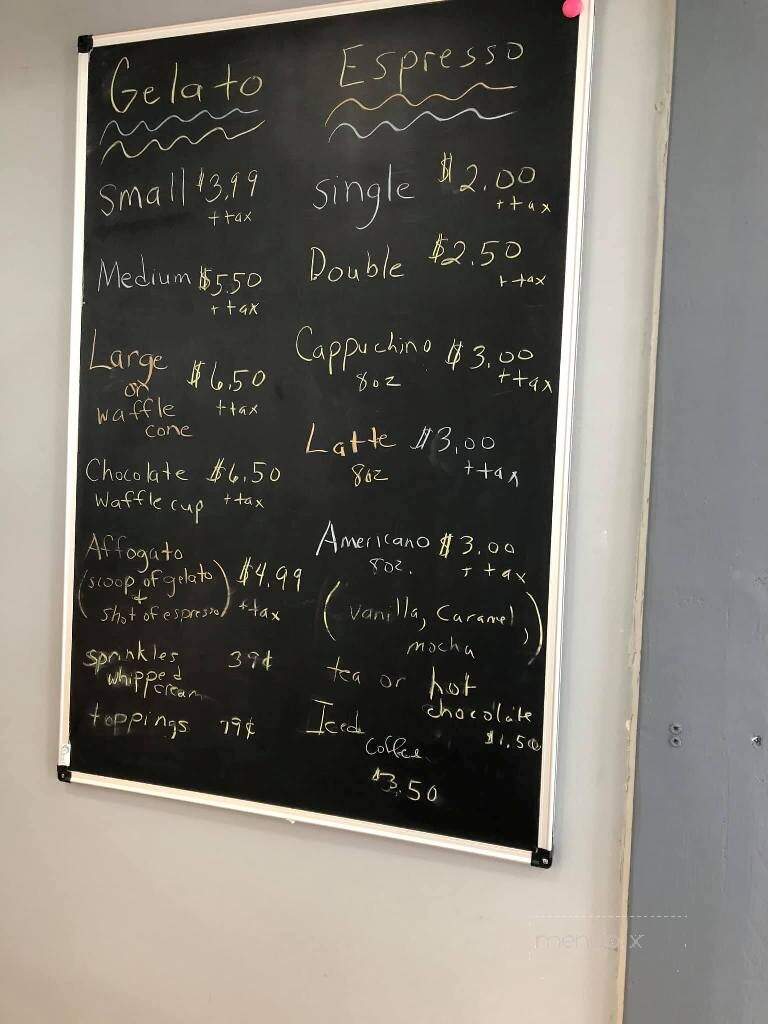 Gelato
small $3.99
+ tax
Medium $5.50
+ tax
Large $6.50
or + tax
waffle
cone
Chocolate $6.50
Waffle cup + tax
Affogato
(scoop of gelato $4.99
+
shot of espresso) + tax
sprinkles 39¢
whipped
cream
toppings 79¢
Espresso
single $2.00
+ tax
Double $2.50
+ tax
Cappuchino $3.00
8oz + tax
Latte $3.00
8oz + tax
Americano $3.00
8oz. + tax
(Vanilla, Caramel,
mocha)
tea or hot
chocolate
$1.50
Iced
Coffee
$3.50
menupix